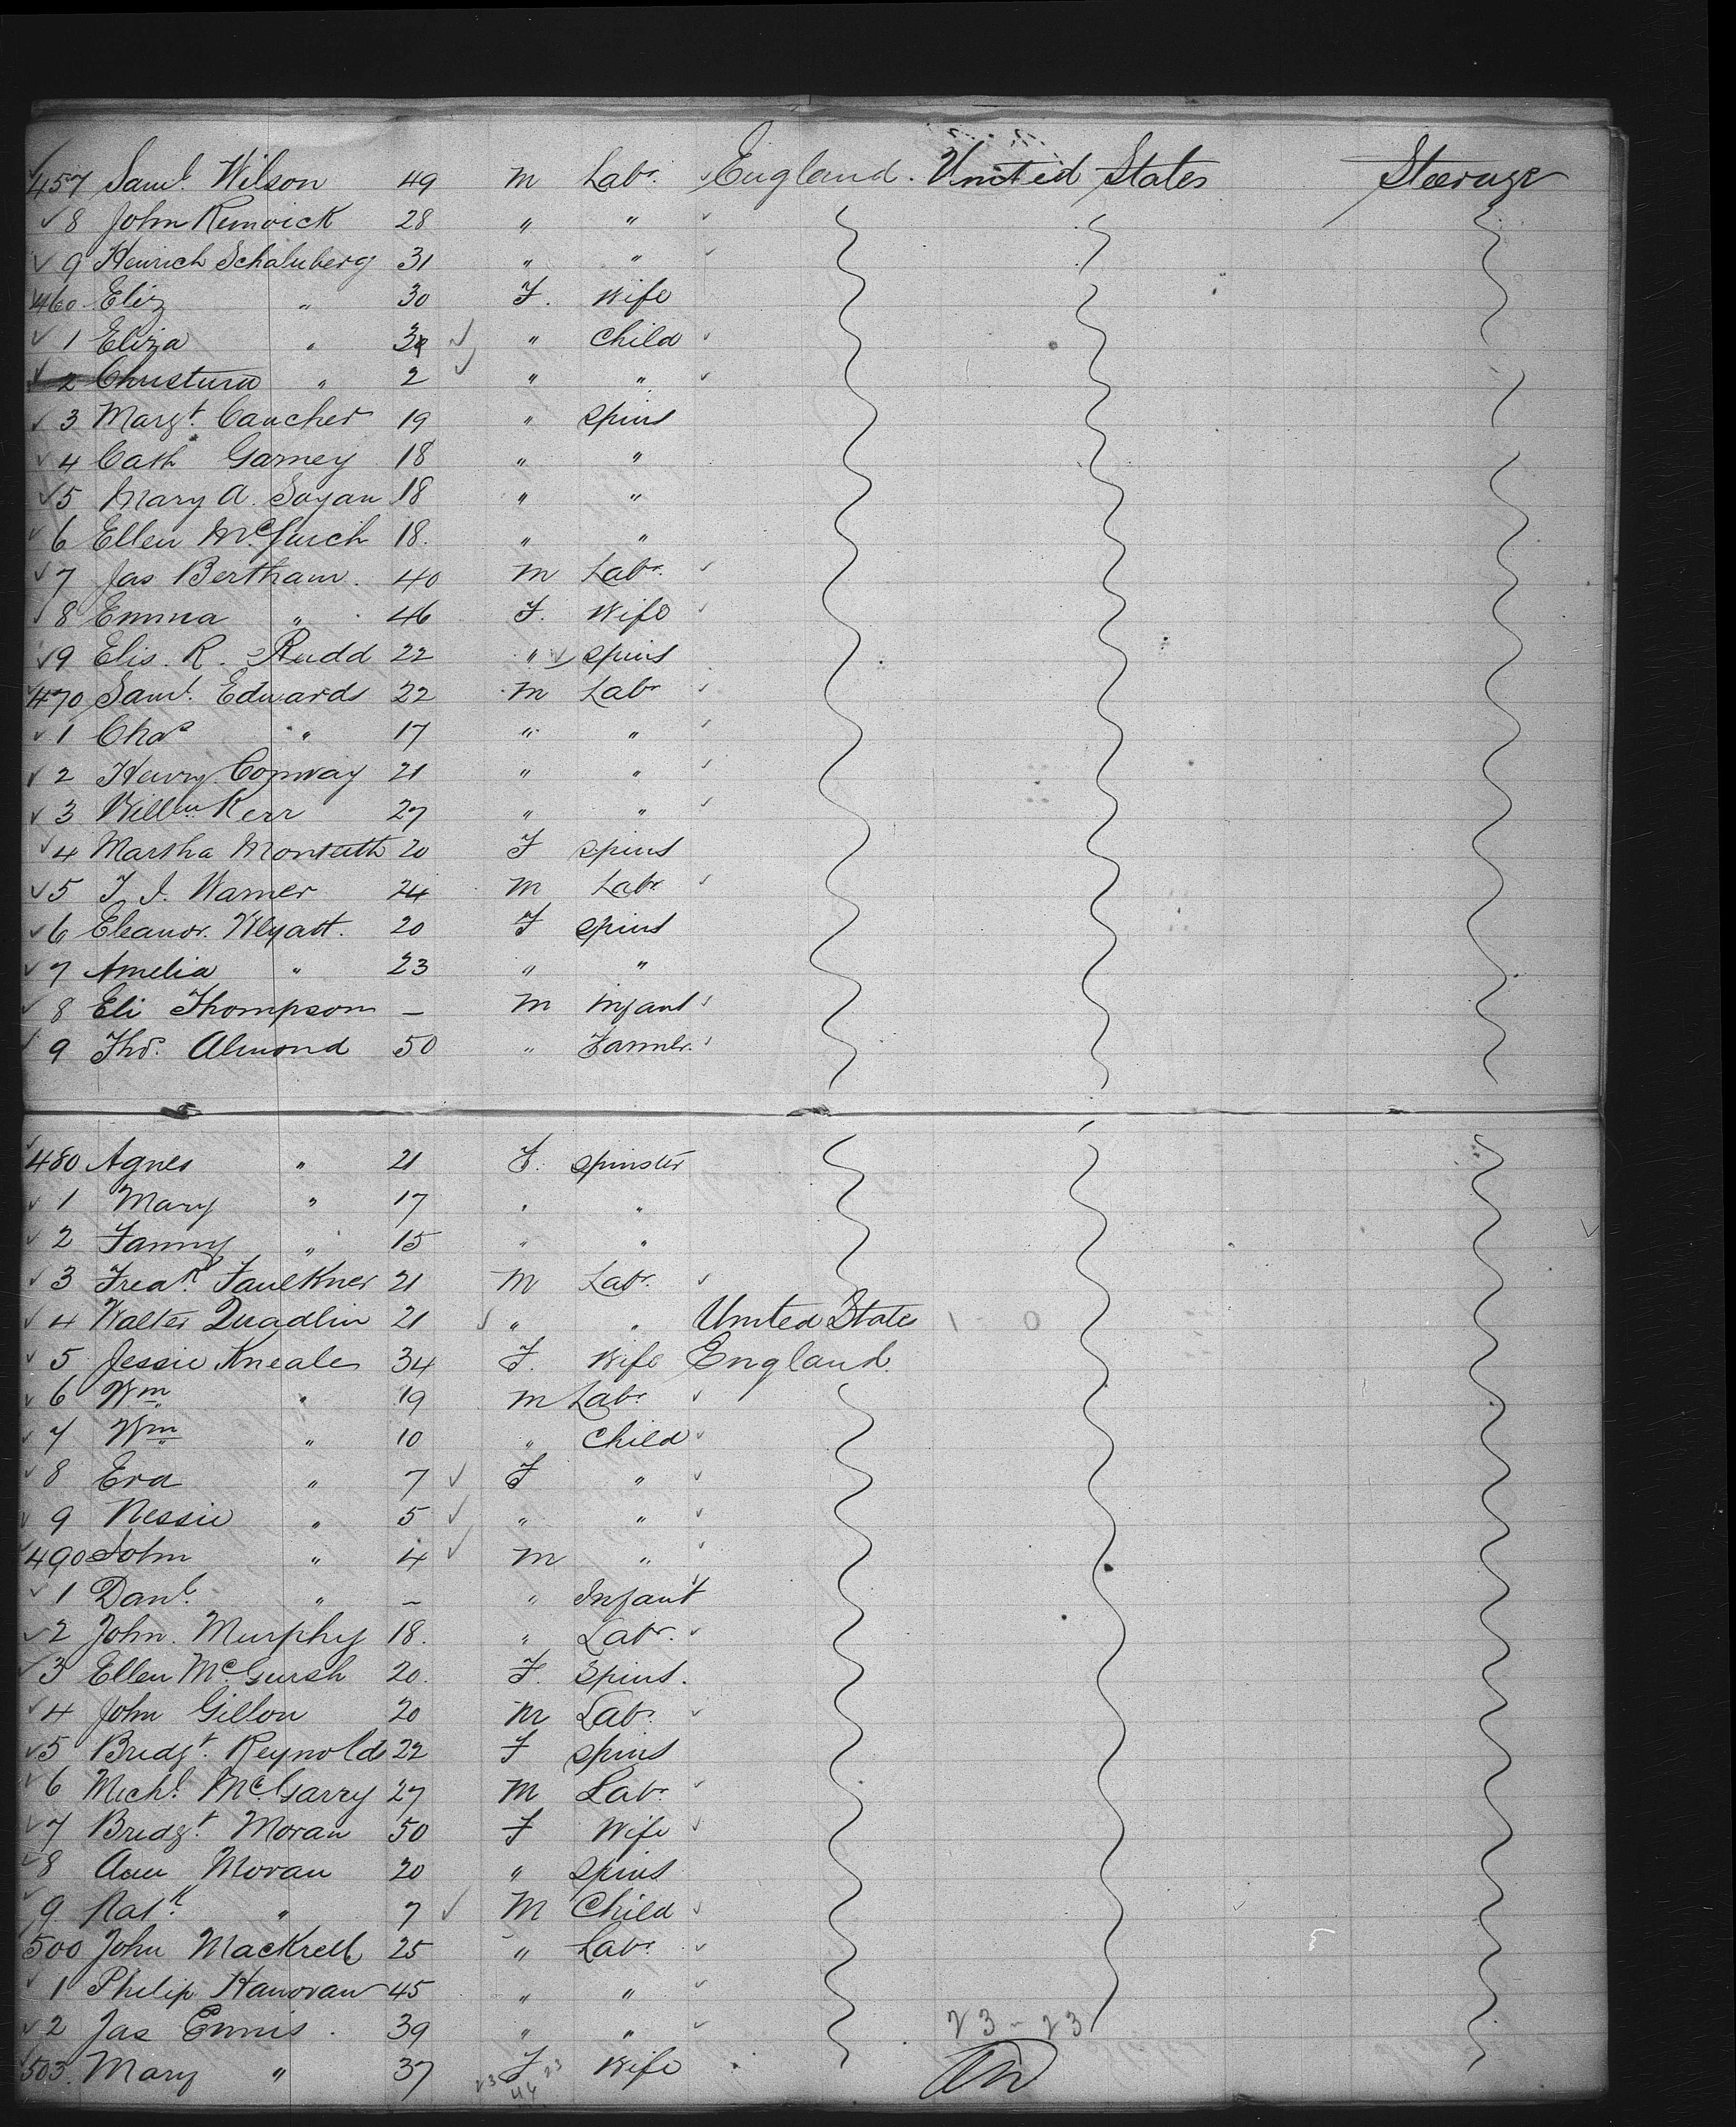 457 Saml. Wilson 49 M Labr. England. United States Steerage
8 John Renwick 28 " "
9 Heinrich Schaluberg 31 " "
460 Eliz " 30 F. Wife
1 Eliza " " Child
2 " 2 " "
3 Margt. Caucher 19 " Spins
4 Cath Garney 18 " "
5 Mary A. Sayan 18 " "
6 Ellen 18. " "
7 Jas Bertham. 40 M Labr.
8 Emma " 46 F. Wife
9 Elis. R. Rudd 22 " Spins
470 Saml. Edwards 22 M Labr
1 Chas " 17 " "
2 Henry Conway 21 " "
3 Willm Kerr 27 " "
4 Martha Monteith 20 F Spins
5 J. J. Warner 24 M Labr
6 Eleanor. Wyatt. 20 F Spins
7 Amelia " 23 " "
8 Eli Thompson — M Infant
9 Thos. Almond 50 " Farmer.
480 Agnes " 21 F. Spinster
1 Mary " 17 " "
2 Fanny " 15 " "
3 Fredk. Faulkner 21 M Labr.
4 Walter Quadlin 21 " " United State 1 0
5 Jessie Kneale 34 F. Wife England.
6 Wm " 19 M Labr.
7 Wm " 10 " Child
8 Eva " 7 F "
9 Nessie " 5 " "
490 John " 4 M "
1 Danl. " — " Infant
2 John. Murphy 18. " Labr.
3 Ellen McGursh 20. F. Spins.
4 John Gillon 20 M Labr.
5 Bridgt. Reynolds 22 F Spins
6 Michl. McGarry 27 M Labr.
7 Bridgt. Moran 50 F Wife
8 Ann Moran 20 " Spins
9 Patk. " 7 M Child
500 John Mackrell 25 " Labr.
1 Philip Hanovan 45 " "
2 Jas Ennis. 39 " " 23 - 23
503. Mary " 37 F Wife
23 23
46